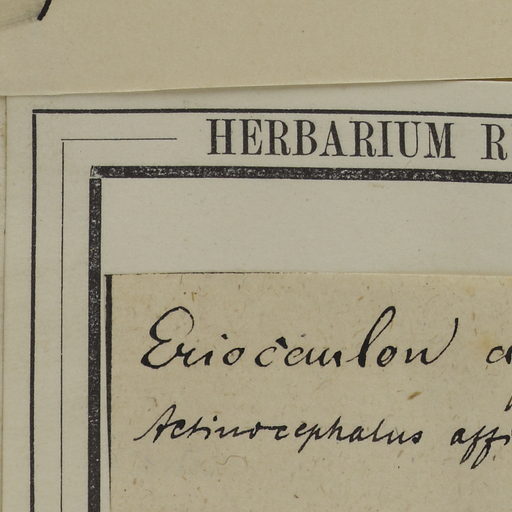 HERBARIUM R
Eriocaulon
Actinocephalus affi